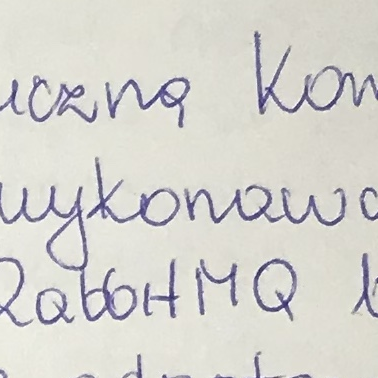 uczną kom
wykonawc
RabbitMQ